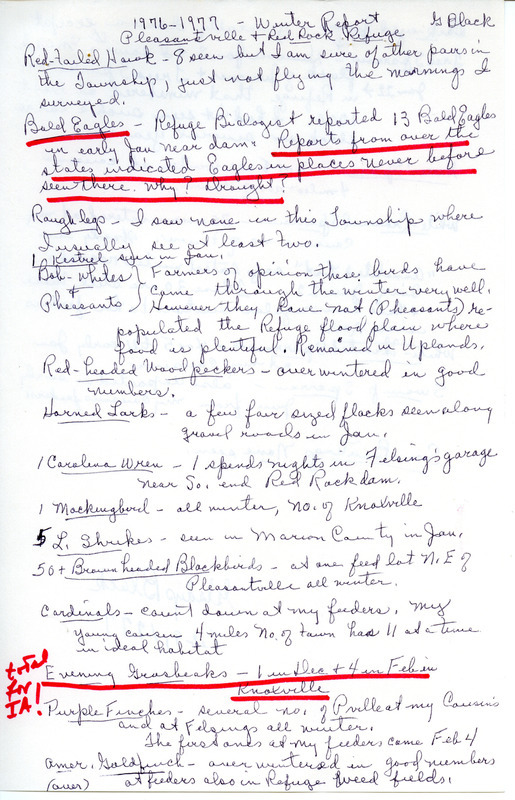 1976-1977 - Winter Report G Black
Pleasantville & Red Rock Refuge
Red-tailed Hawk - 8 seen but I am sure of other pairs in
the Township, just not flying the mornings I
surveyed.
Bald Eagles - Refuge Biologist reported 13 Bald Eagles
in early Jan near dam. Reports from over the
states indicated Eagles in places never before
seen there. Why? Drought?
Rough legs - I saw none in this Township where
I usually see at least two.
1 Kestrel seen in Jan.
Bob-whites } Farmers of opinion these birds have
& { come through the winter very well.
Pheasants However they have not (Pheasants) re-
populated the Refuge flood plain where
food is plentiful. Remained in Uplands.
Red-headed Woodpeckers - overwintered in good
numbers.
Horned Larks - a few fair sized flocks seen along
gravel roads in Jan.
1 Carolina Wren - 1 spends nights in Felsing's garage
near So. end Red Rock dam.
1 Mockingbird - all winter, No. of Knoxville
5 L. Shrikes - seen in Marion County in Jan.
50+ Brown headed Blackbirds - at one feed lot N.E of
Pleasantville all winter.
Cardinals - count down at my feeders. My
young cousin 4 miles No. of town has 11 at a time
in ideal habitat
total for IA! Evening Grosbeaks - 1 in Dec & 4 in Feb in
Knoxville
Purple Finches - several no. of Pville at my Cousins
and at Felsings all winter.
The first ones at my feeders came Feb 4
Amer. Goldfinch - over wintered in good numbers
(over) at feeders also in Refuge weed fields.